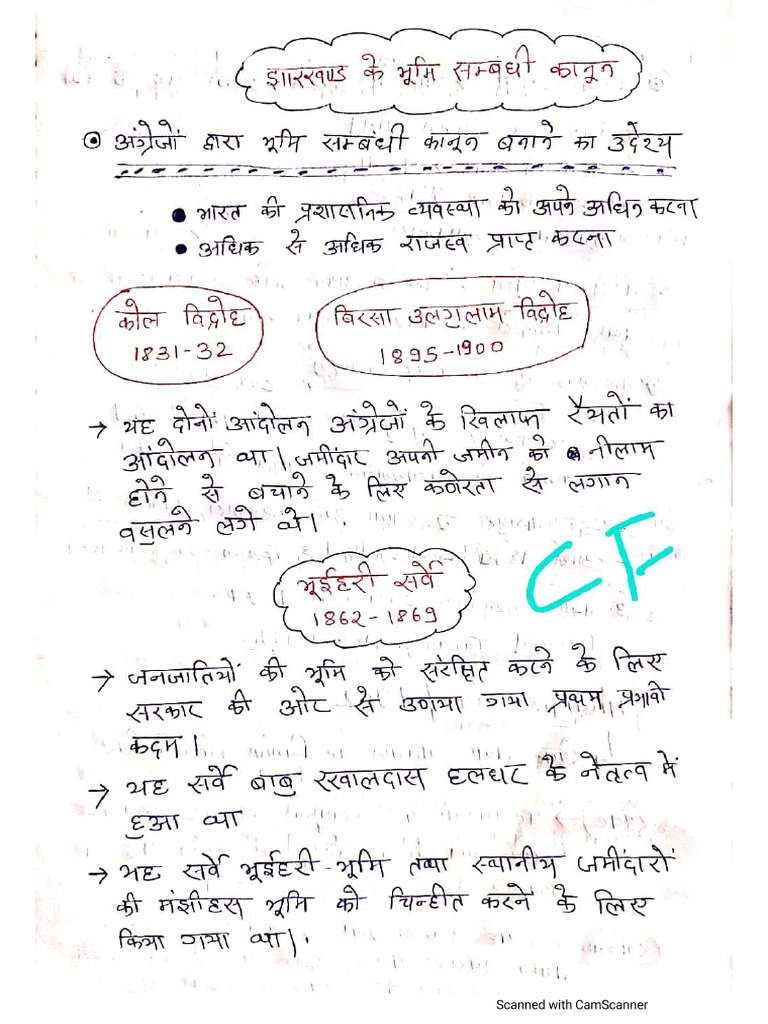 झारखण्ड के भूमि सम्बंधी कानून
अंग्रेजों द्वारा भूमि सम्बंधी कानून बनाने का उद्देश्य
भारत की प्रशासनिक व्यवस्था को अपने अधिन करना
अधिक से अधिक राजस्व प्राप्त करना
कोल विद्रोह
1831-32
बिरसा उलगुलाम विद्रोह
1895-1900
→ यह दोनों आंदोलन अंग्रेजों के खिलाफ रैयतों का
आंदोलन था। जमींदार अपनी जमीन को नीलाम
होने से बचाने के लिए कठोरता से लगान
वसुलने लगे थे।
CF
भूईहरी सर्वे
1862-1869
→ जनजातियों की भूमि को संरक्षित करने के लिए
सरकार की ओर से उठाया गया प्रथम प्रभावी
कदम।
→ यह सर्वे बाबु रखालदास हलधर के नेतृत्व में
हुआ था
→ यह सर्वे भूईहरी भूमि तथा स्थानीय जमींदारों
की मंझीहस भूमि को चिन्हीत करने के लिए
किया गया था।
Scanned with CamScanner